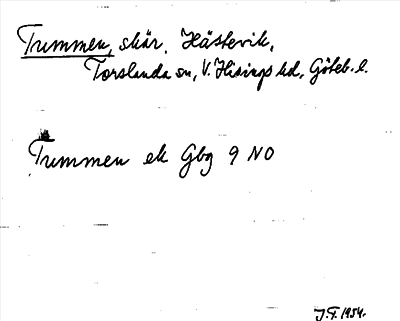 Trummen, skär. Hästevik,
Torslanda sn, V. Hisings hd, Göteb. l.
Trummen ek Gbg 9 NO
J.F. 1954.